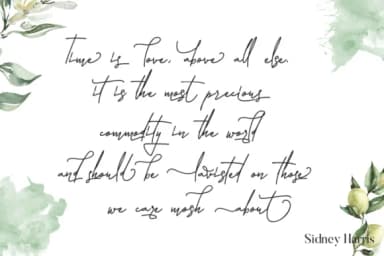 Time is love, above all else,
it is the most precious
commodity in the world
and should be lavished on those
we care most about
Sidney Harris